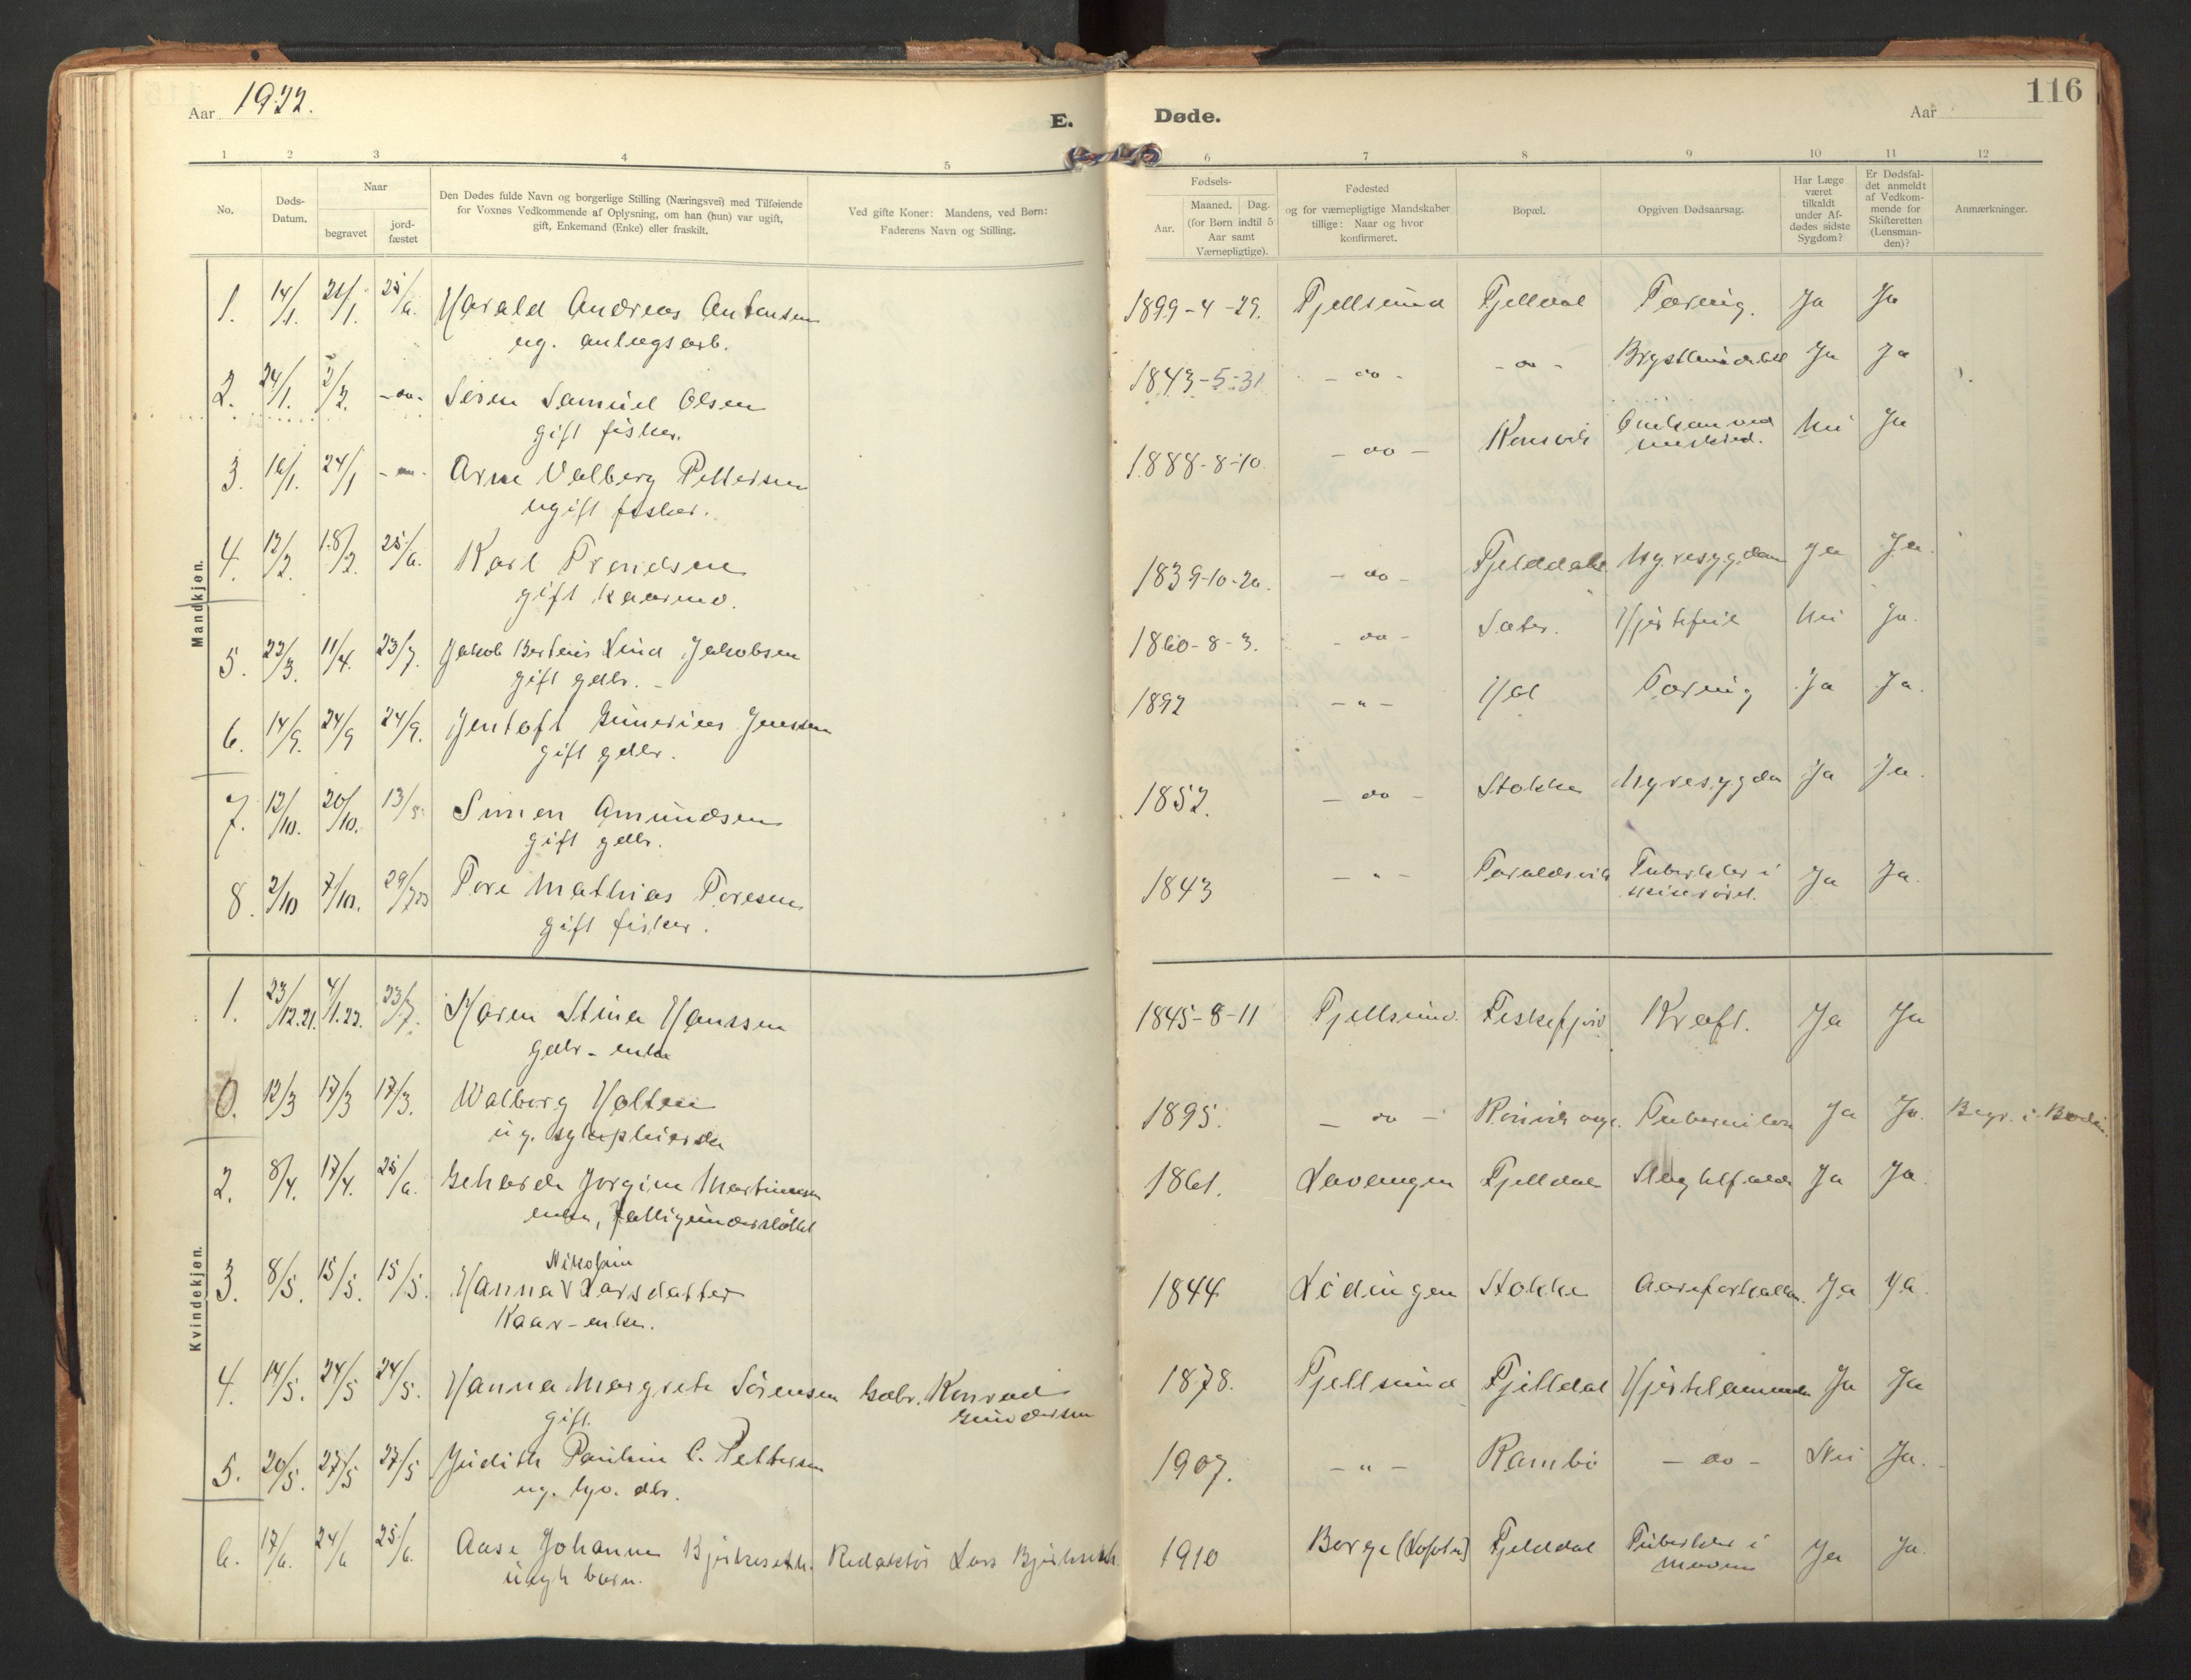 Aar 1922. E.
Døde. Aar 116
1 2 3 4 5
6 7 8 9 10 11 12
No.
Døds-
Datum.
Naar
begravet
jord-
fæstet
Den Dødes fulde Navn og borgerlige Stilling (Næringsvei) med Tilføiende
for Voxnes Vedkommende af Oplysning, om han (hun) var ugift,
gift, Enkemand (Enke) eller fraskilt.
Ved gifte Koner: Mandens, ved Børn:
Faderens Navn og Stilling.
Fødsels-
Aar.
Maaned. Dag.
(for Børn indtil 5
Aar samt
Værnepligtige).
Fødested
og for værnepligtige Mandskaber
tillige: Naar og hvor
konfirmeret.
Bopæl.
Opgiven Dødsaarsag.
Har Læge
været
tilkaldt
under Af-
dødes sidste
Sygdom?
Er Dødsfal-
det anmeldt
af Vedkom-
mende for
Skifteretten
(Lensman-
den)?
Anmærkninger.
Mandkjøn.
1. 14/1. 21/1. 25/6. Harald Andreas Antonsen 1899-4-29. Tjellsund Fjelldal Tæring. Ja Ja
ug. anlægsarb.
2. 24/1. 2/2. -do- Sören Samuel Olsen 1843-5-31 -do- -do- Ja Ja
gift fisker.
3. 16/1. 24/1 Arne Valberg Pettersen 1888-8-10 -do- Kongsvik Nei Ja
ugift fisker.
4. 12/2. 18/2. 25/6. Karl Trondsen 1839-10-20. -do- Fjelddal Nyresygdom Ja Ja.
gift kaarmd.
5. 22/3. 11/4. 23/7. Jakob Berteus Lind Jakobsen 1860-8-3. -do- Sæter. Hjertefeil Nei Ja.
gift gdbr.
6. 14/9. 24/9 24/9. Jentoft Gunerius Jenssen 1892 -"- Hol Tæring Ja Ja.
gift gdbr.
7. 12/10. 20/10. Simon Amundsen 1852. -do- Stokke Nyresygdom Ja Ja.
gift gdbr.
8. 2/10 7/10. 29/7 23 Tore Mathias Toresen 1843 -"- Taraldsvik Tuberkler i Ja Ja.
gift fisker. spiserøret.
Kvindekjøn.
1. 23/12.21. 4/1.22. 23/7. Karen Stina Hanssen 1845-8-11 Tjellsund. Fiskefjord Kræft. Ja Ja
gdbr-enke
0. 12/3 17/3 17/3. Walborg Holten 1895. -do- Tuberkulose Ja Ja. Begr. i Bodin.
ug. sykepleierske
2. 8/4. 17/4. 25/6. Geharda Jorgine Martinussen 1861. Lavangen Fjelldal Slagtilfælde Ja Ja.
enke, fattigunderstöttet
3. 8/5. 15/5. 15/5. Hanna Larsdatter 1844 Lödingen Stokke Aareforkalkn. Ja Ja.
Nikoline
Kaar-enke.
4. 14/5. 24/5 24/5. Hanna Margrete Sörensen Gdbr. Konrad 1878. Tjellsund Fjelldal Hjertelammelse Ja Ja
gift. Gundersen
5. 20/5. 27/5 27/5 Judith Pauline C. Pettersen 1907. -"- Rambö -do- Nei Ja.
ug. dtr.
6. 17/6. 24/6 25/6. Aase Johanne Bjerkeseth. Redaktör Lars Bjerkeseth. 1910 Borge (Lofoten) Fjelddal Tuberkler i Ja Ja.
uegte barn. maven